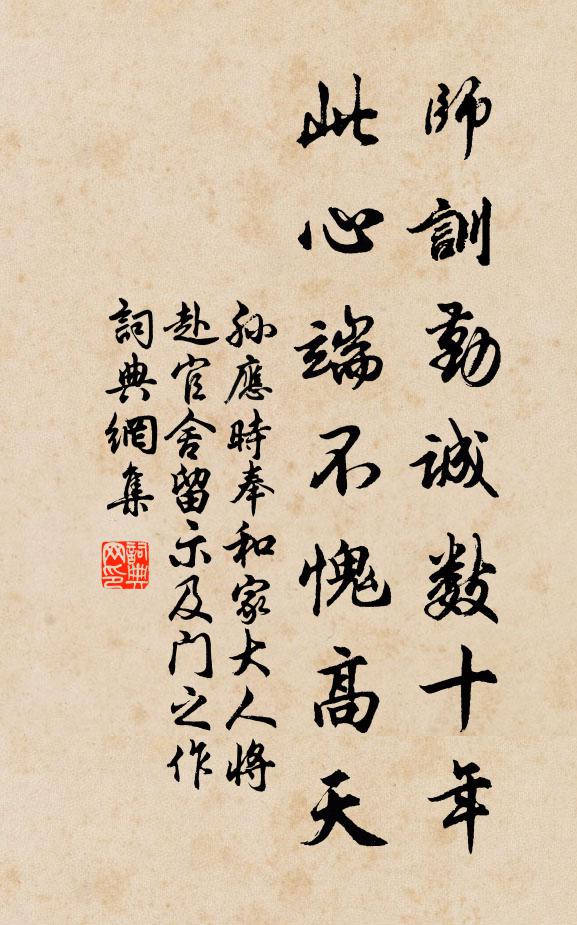 師訓勤誠數十年
此心端不愧高天
孙應時奉和家大人將
赴官舍留示及门之作
詞典網集
詞典
网印